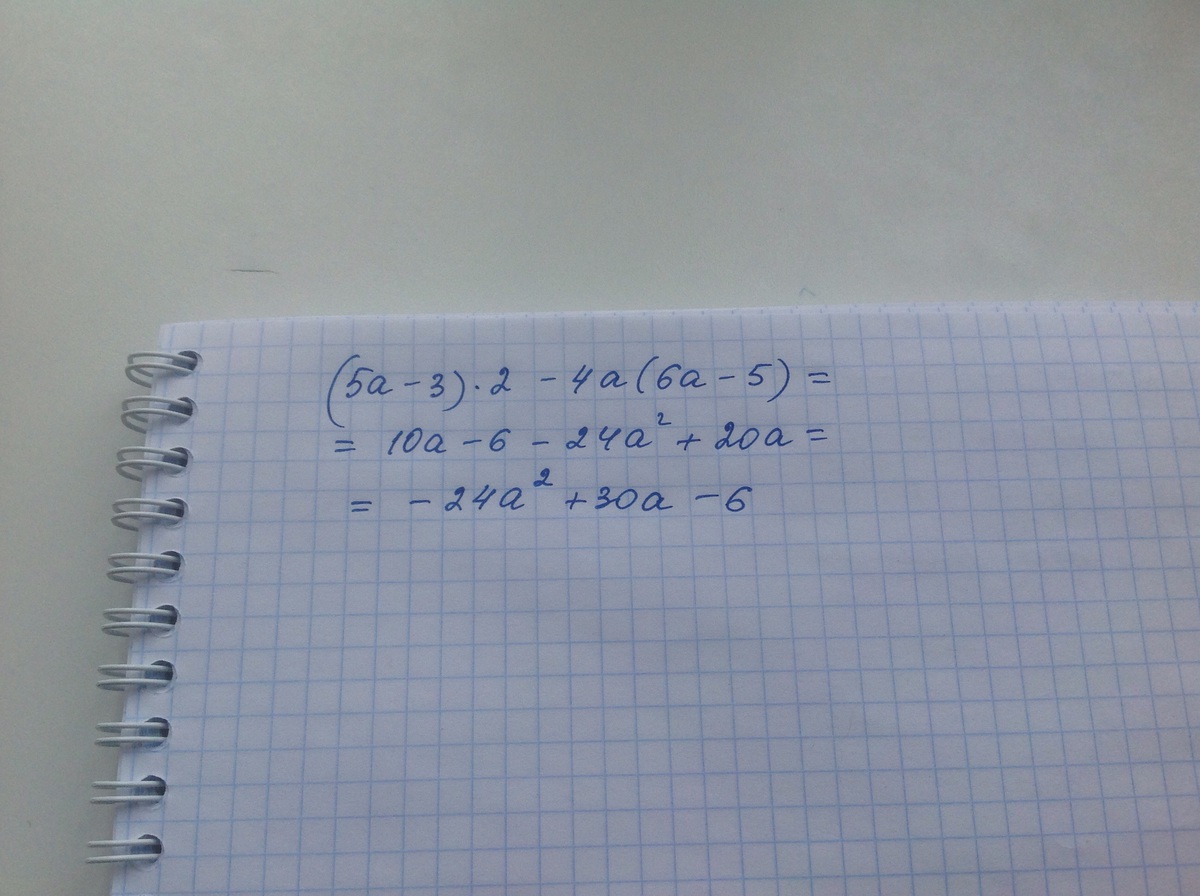 (5a-3)·2 -4a(6a-5)=
= 10a-6-24a²+20a=
= -24a²+30a-6